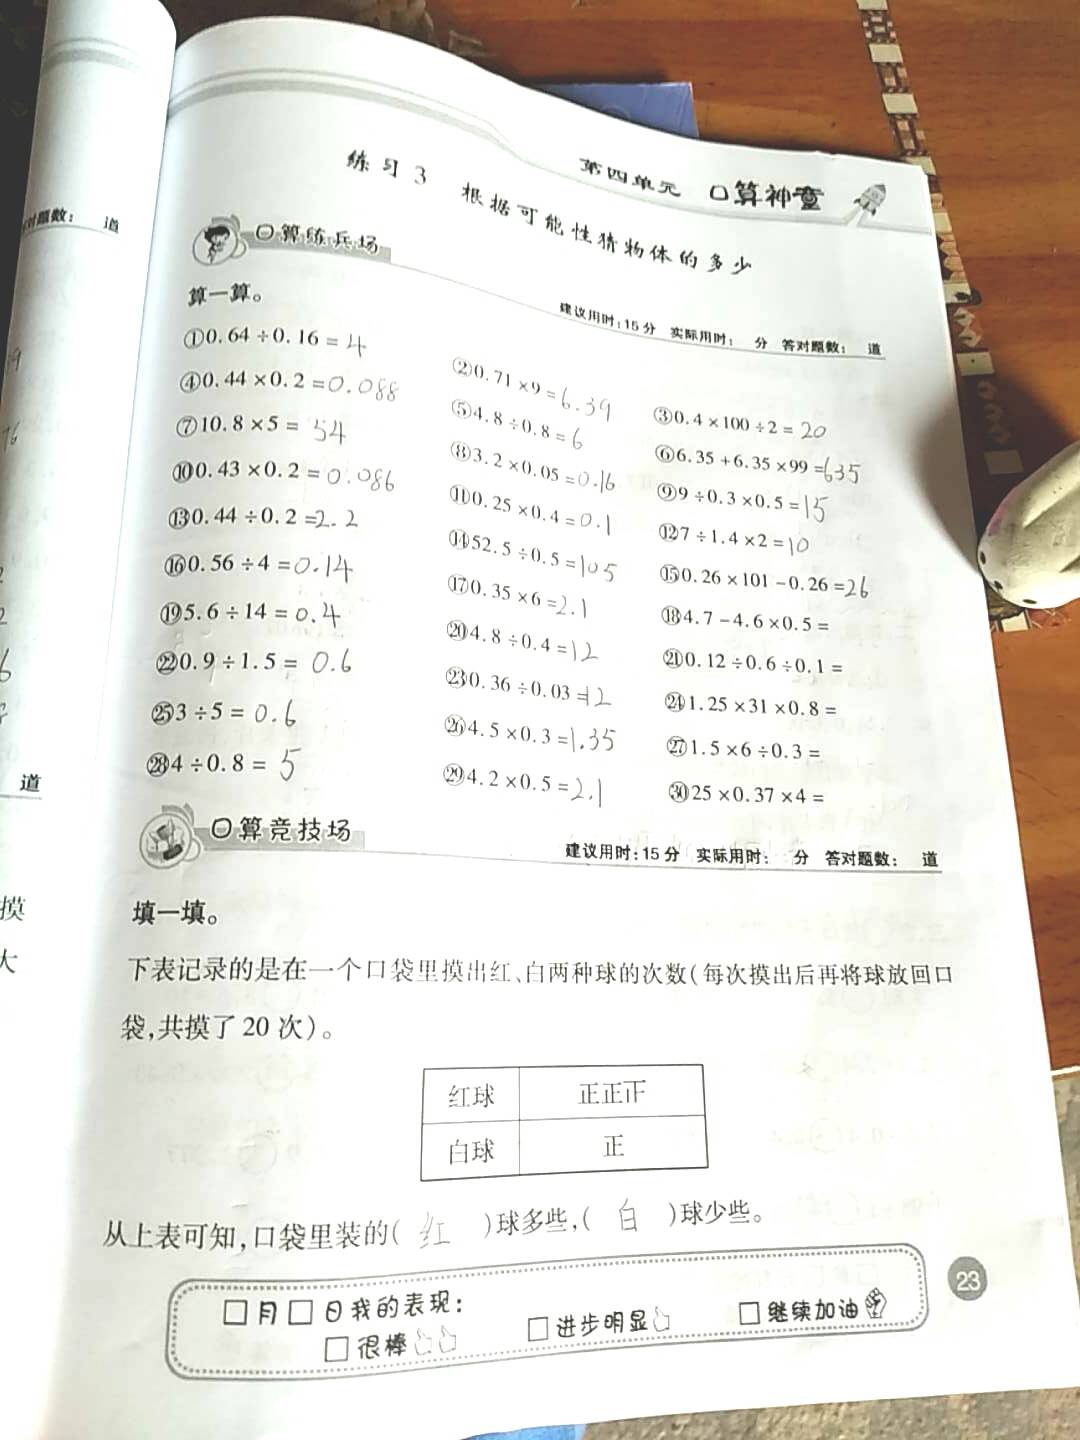 第四单元 口算神童
练习3 根据可能性猜物体的多少
对题数： 道
口算练兵场
建议用时:15分 实际用时： 分 答对题数： 道
算一算。
①0.64÷0.16=4
②0.71×9=6.39
③0.4×100÷2=20
④0.44×0.2=0.088
⑤4.8÷0.8=6
⑥6.35+6.35×99=635
⑦10.8×5=54
⑧3.2×0.05=0.16
⑨9÷0.3×0.5=15
⑩0.43×0.2=0.086
⑪0.25×0.4=0.1
⑫7÷1.4×2=10
⑬0.44÷0.2=2.2
⑭52.5÷0.5=105
⑮0.26×101-0.26=26
⑯0.56÷4=0.14
⑰0.35×6=2.1
⑱4.7-4.6×0.5=
⑲5.6÷14=0.4
⑳4.8÷0.4=12
㉑0.12÷0.6÷0.1=
㉒0.9÷1.5=0.6
㉓0.36÷0.03=12
㉔1.25×31×0.8=
㉕3÷5=0.6
㉖4.5×0.3=1.35
㉗1.5×6÷0.3=
㉘4÷0.8=5
㉙4.2×0.5=2.1
㉚25×0.37×4=
道
口算竞技场
建议用时:15分 实际用时： 分 答对题数： 道
摸
大
填一填。
下表记录的是在一个口袋里摸出红、白两种球的次数(每次摸出后再将球放回口
袋,共摸了20次)。
红球 正正正
白球 正
从上表可知,口袋里装的( 红 )球多些,( 白 )球少些。
□月□日我的表现：
□很棒 □进步明显 □继续加油
23